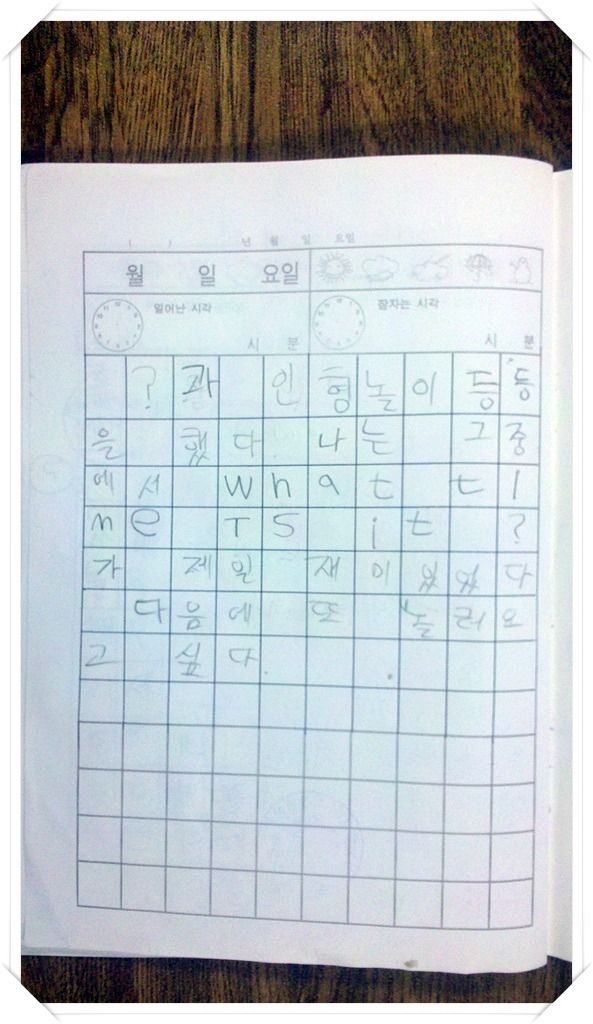 ( ) 년 월 일 요일
월 일 요일
일어난 시각 잠자는 시각
시 분 시 분
? 과 인형놀이 등등
을 했다. 나는 그중
에서 What ti
me TS it ?
가 제일 재미있있다
다음에 또 놀러오
고 싶다.